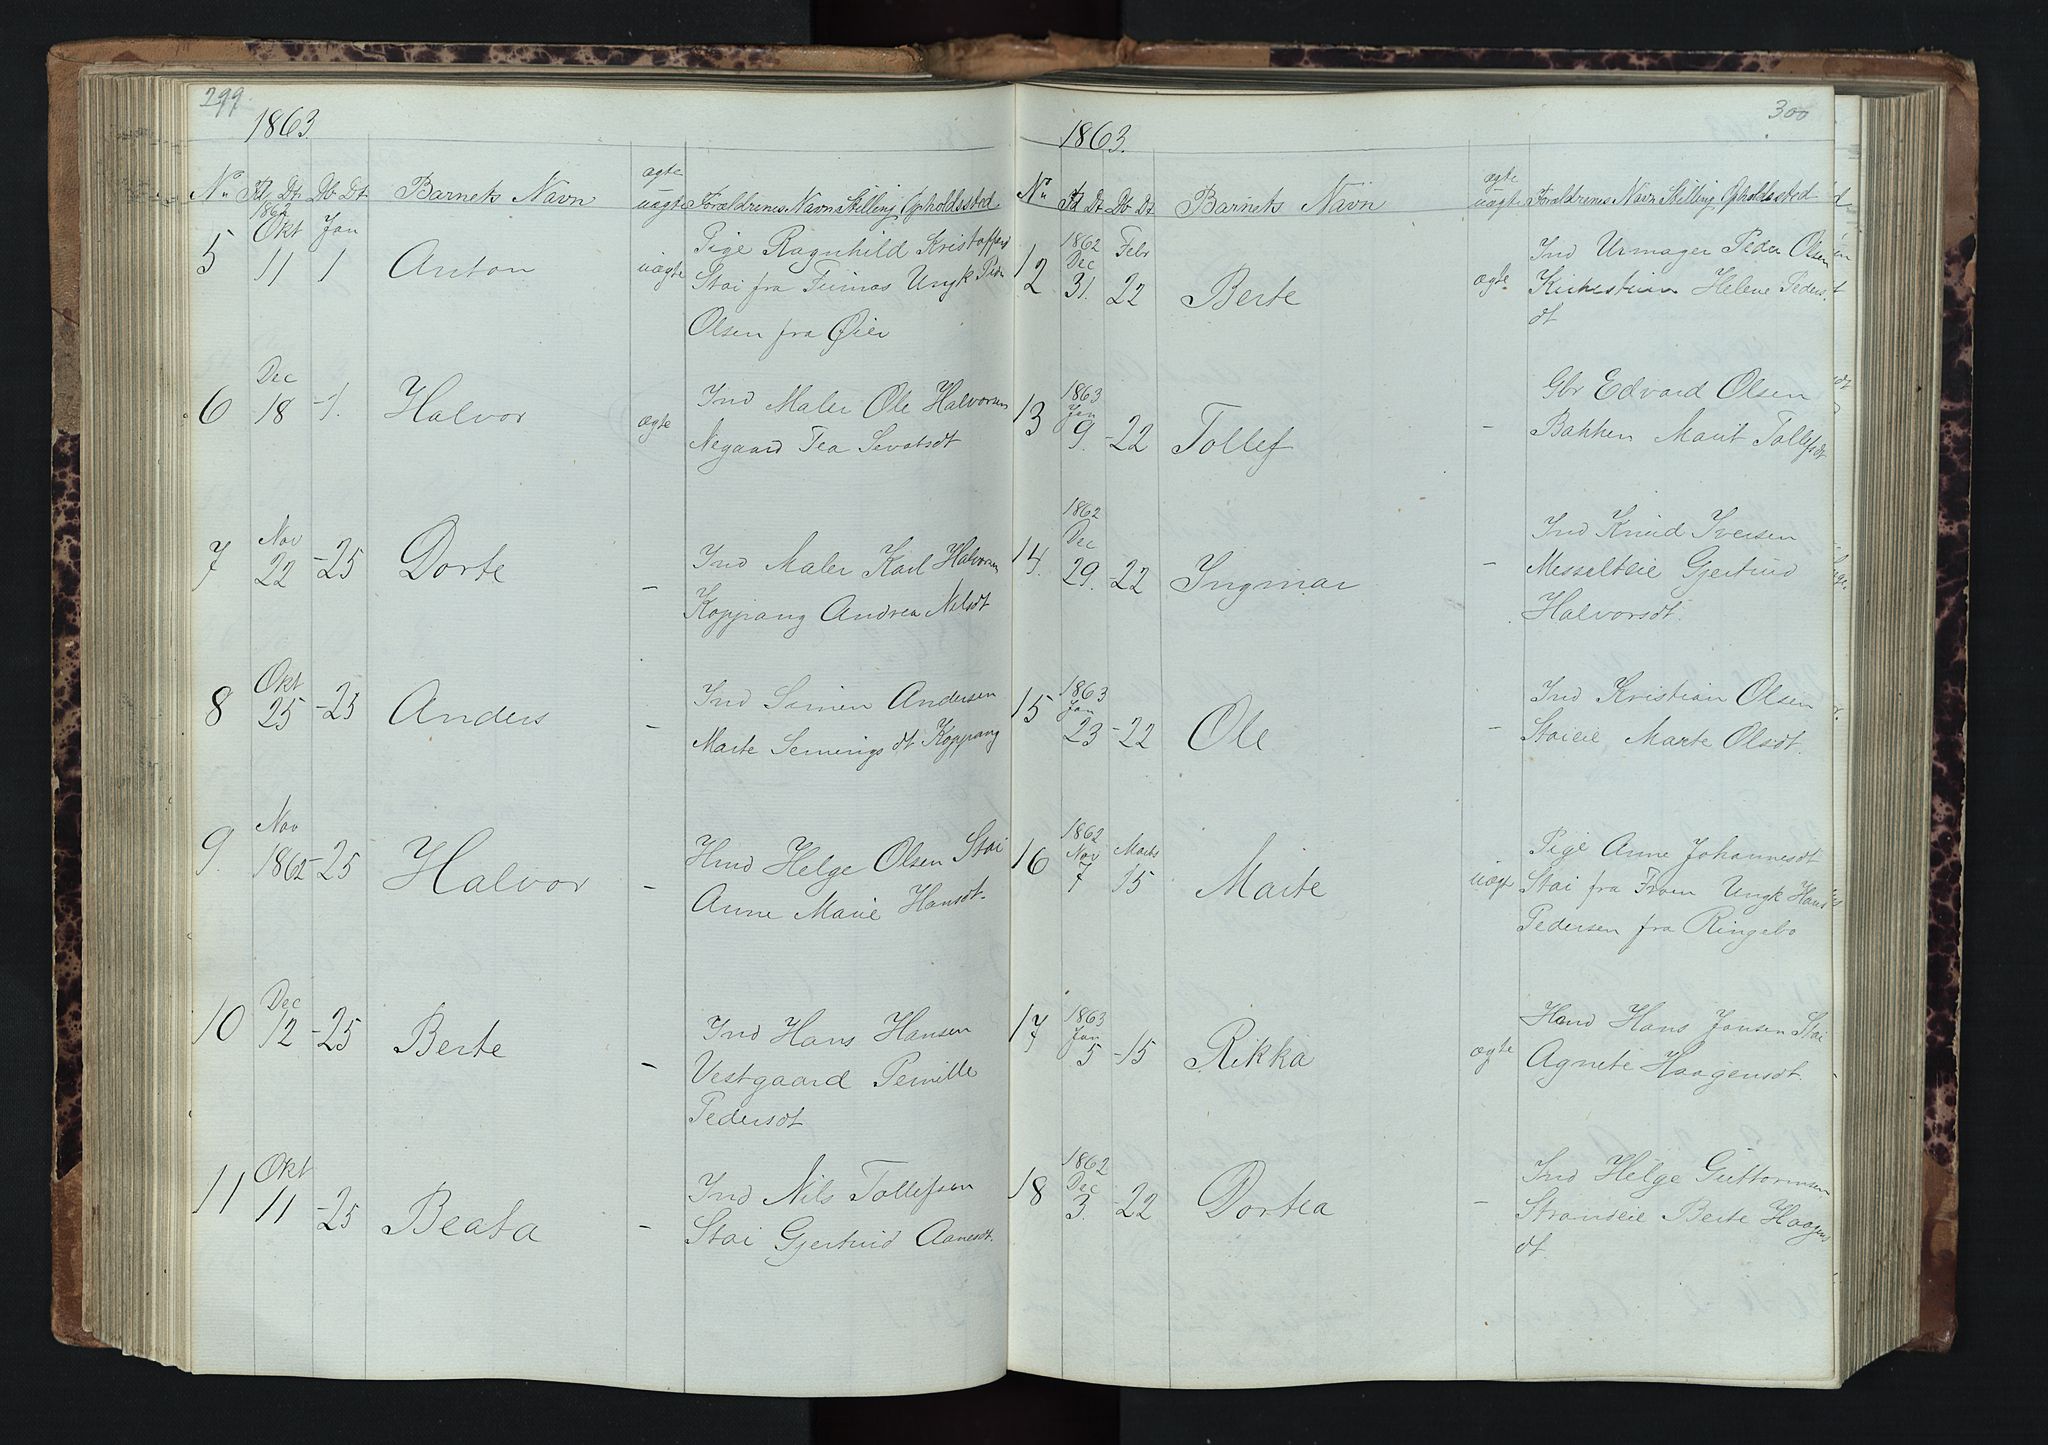 299
1863.
No Fd Dt Db Dt Barnets Navn ægte uægte Forældrenes Navn Stilling, Opholdssted
1862 Okt Jan
5 11 1 Anton uægte Pige Ragnhild Kristoffers
Stai fra Ungk Peder
Olsen fra Øier
Dec
6 18 -1. Halvor ægte Ind Maler Ole Halvorsen
Negaard Tea Sevatsdt
Nov
7 22 -25 Dorte - Ind Maler Karl Halvorsen
Koppang Andrea Nilsdt
Okt
8 25 -25 Anders - Ind Simen Andersen
Marte Semingsdt Koppang
Nov
9. 1862 -25 Halvor - Hmd Helge Olsen Stai
Anne Marie Hansdt.
Dec
10 12 -25 Berte - Ind Hans Hansen
Vestgaard Pernille
Pedersdt
Okt
11 11 -25 Beata - Ind Nils Tollefsen
Stai Gjertrud Aanesdt.
300
1863.
No Fd Dt Db Dt Barnets Navn ægte uægte Forældrenes Navn Stilling, Opholdssted
1862 Dec Febr
12 31. 22 Berte ægte Ind Urmager Peder Olsen
Kirkestuen Helene Peders
dt
1863 Jan
13 9. -22 Tollef - Gbr Edvard Olsen
Bakken Marit Tollefsdt
1862 Dec
14. 29. 22 Ingmar - Ind Knud Iversen
Messelteie Gjertrud
Halvorsdt.
1863 Jan
15 23 -22 Ole - Ind Kristian Olsen
Staieie Marte Olsdt.
1862 Nov Marts
16 7 15 Marte uægt Pige Anne Johannesdt
Stai fra Fron Ungk Hans
Pedersen fra Ringebo
1863 Jan
17 5 -15 Rikka ægte Hmd Hans Jonsen Stai
Agnete Haagensdt.
1862 Dec
18 3. -22 Dortea - Ind Helge Guttormsen
Strandeie Berte Haagens
dt.